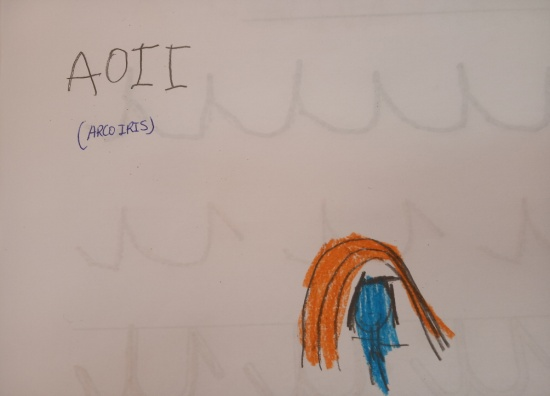 AOII
(ARCOIRIS)